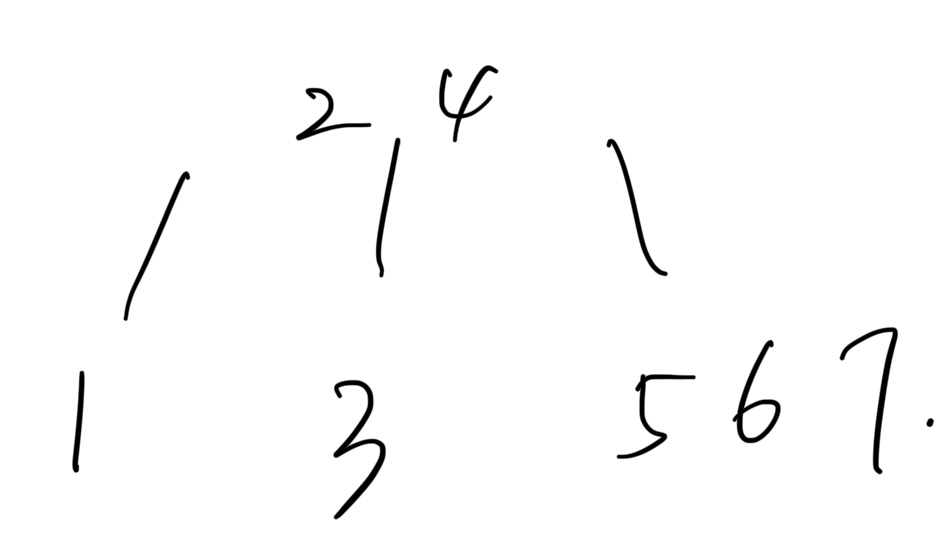 2 4
1 3 5 6 7.